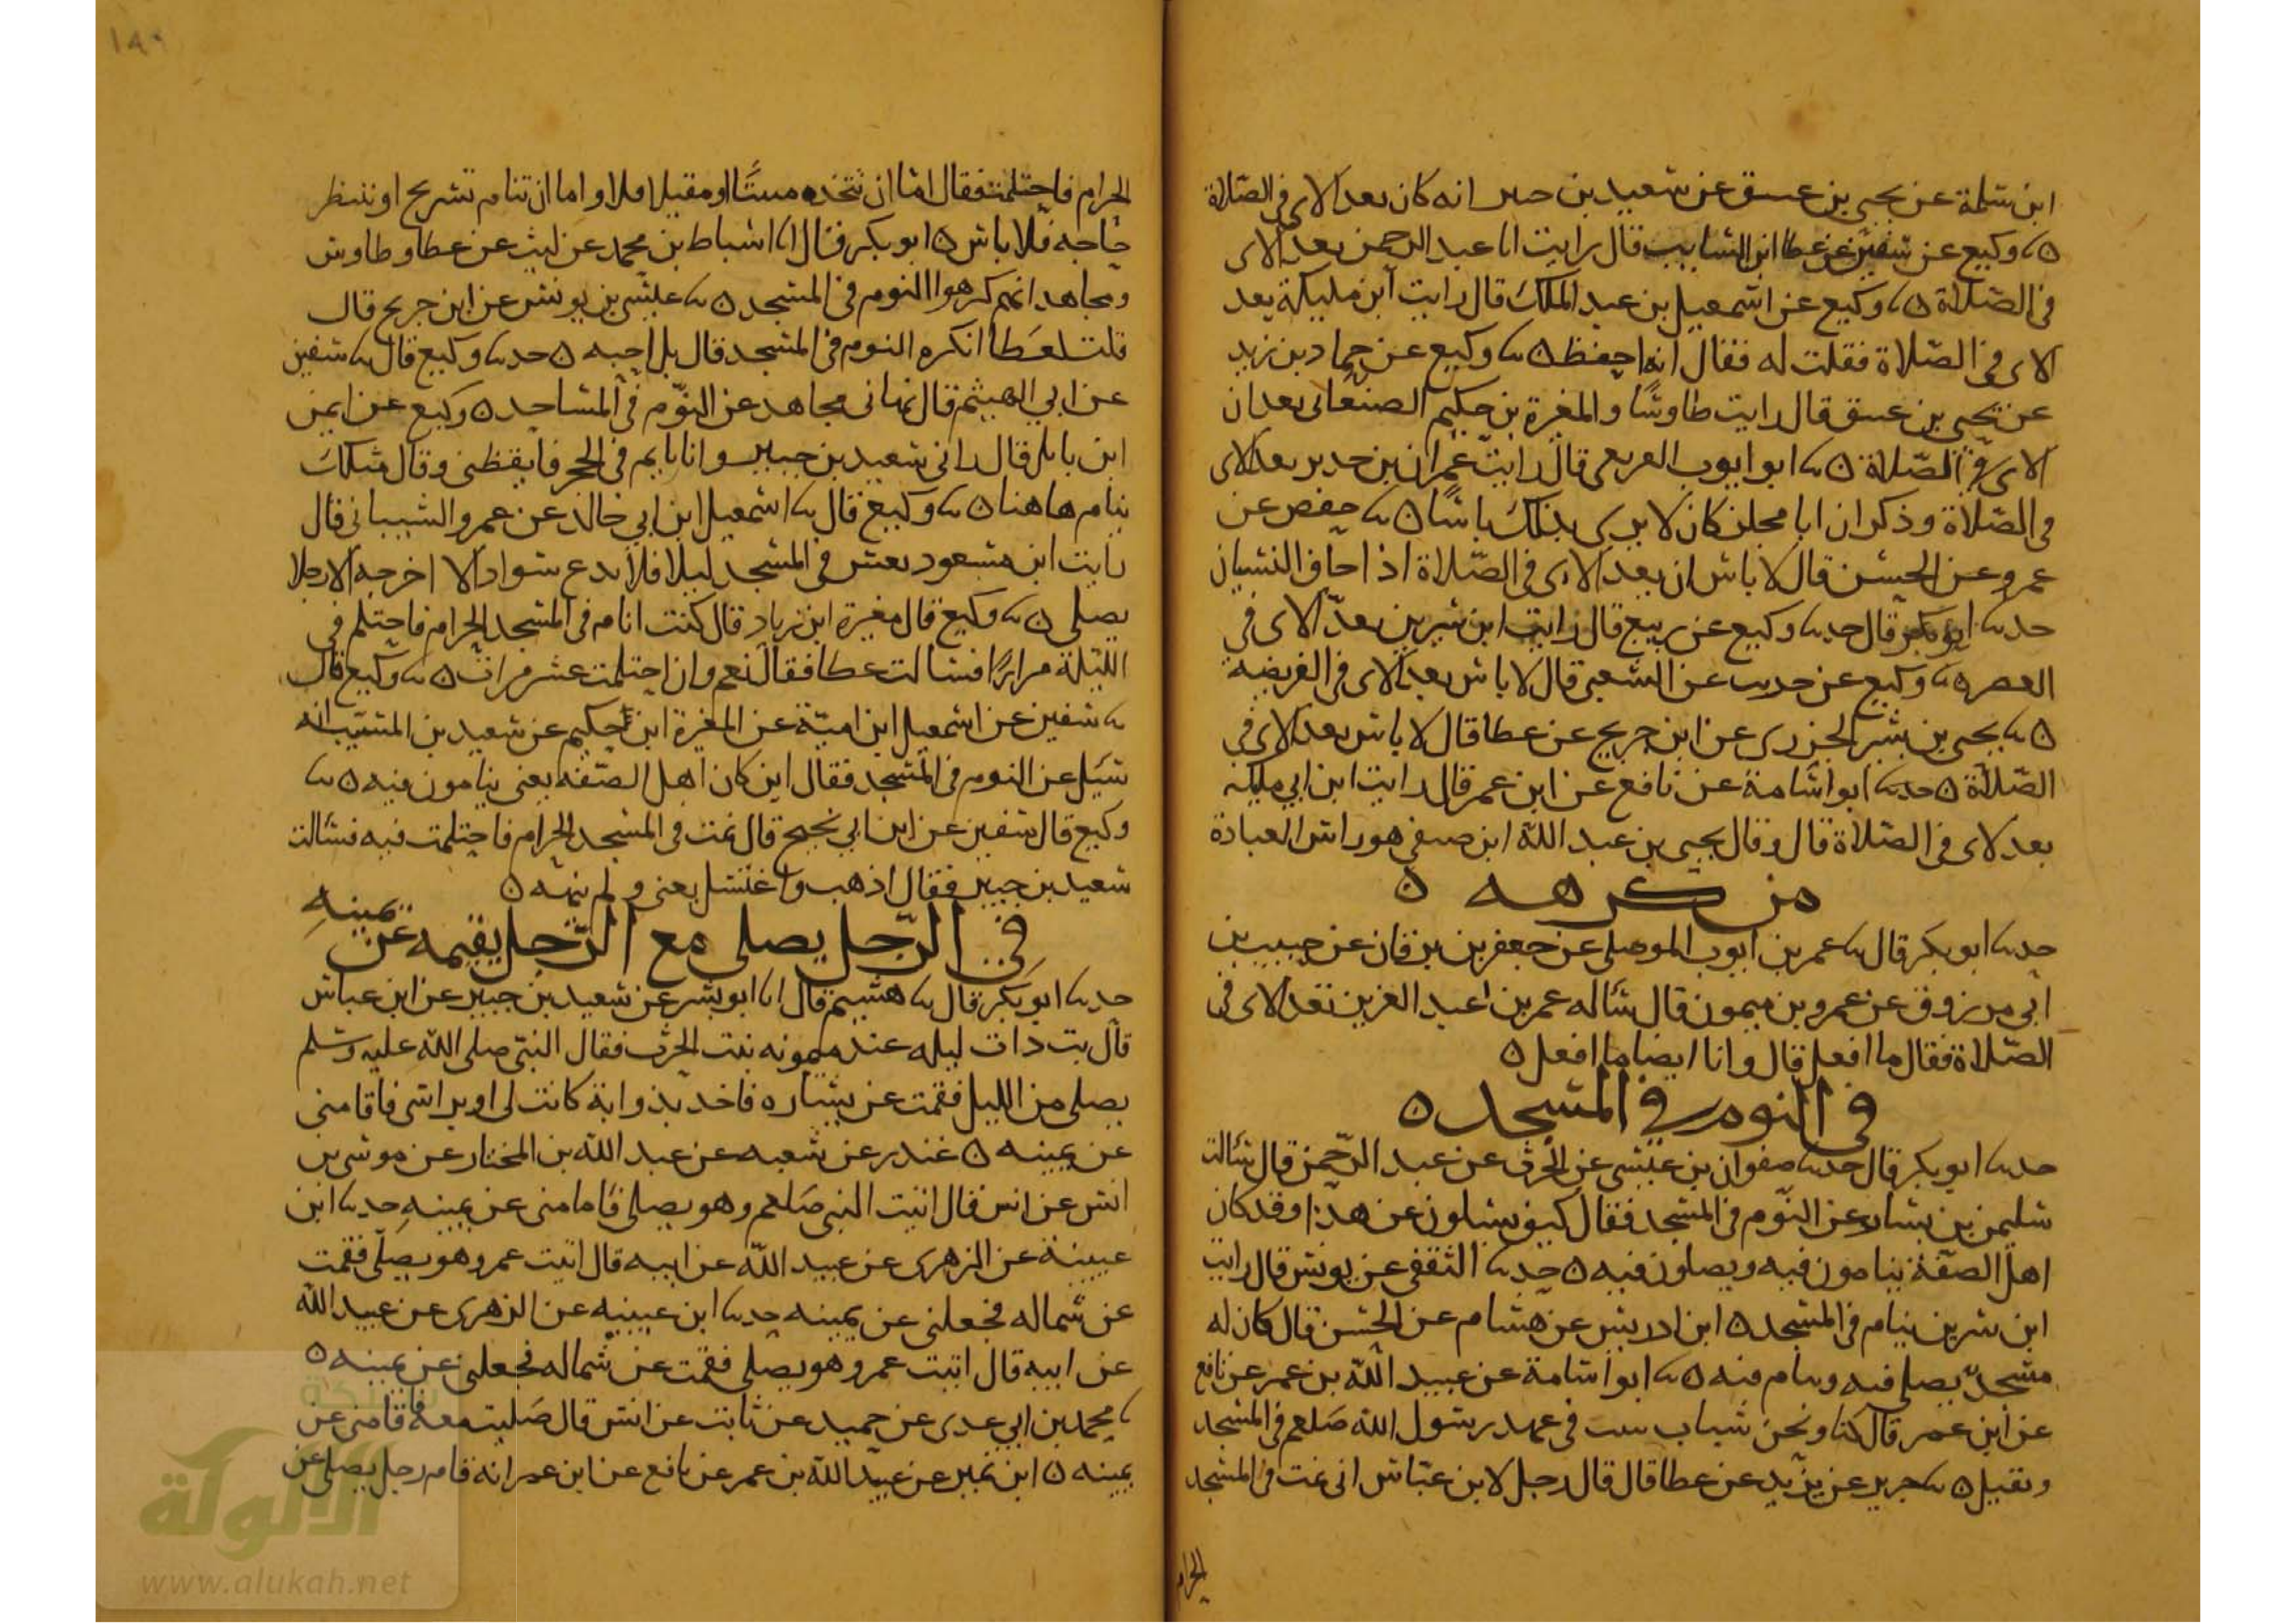 ابن سلمة عن يحيى بن عتيق عن سعيد بن جبير انه كان يعد الاى فى الصلاة
ه ثنا وكيع عن سفين عن عطا ابن السايب قال رايت ابا عبد الرحمن يعد الاى
فى الصلاة ه ثنا وكيع عن اسمعيل بن عبد الملك قال رايت ابن مليكة يعد
الاى فى الصلاة فقلت له فقال انه احفظ ه ثنا وكيع عن حماد بن زيد
عن يحيى بن عتيق قال رايت طاوسا والمغيرة بن حكيم الصنعانى يعدان
الاى فى الصلاة ه ثنا ابو ايوب قال رايت عمران بن حدير يعد الاى
فى الصلاة وذكر ان ابا مجلز كان لا يرى بذلك باسا ه ثنا حفص عن
عمرو عن الحسن قال لا باس ان يعد الاى فى الصلاة اذا خاف النسيان
حدثنا ابو بكر قال حدثنا وكيع عن ربيع قال رايت ابن سيرين يعد الاى فى
العصر ه ثنا وكيع عن حريث عن الشعبى قال لا باس بعد الاى فى الفريضة
ه ثنا يحيى بن بشر الجزرى عن ابن جريج عن عطا قال لا باس بعد الاى فى
الصلاة ه حدثنا ابو اسامة عن نافع عن ابن عمر قال رايت ابن ابي مليكه
يعد الاى فى الصلاة قال وقال يحيى بن عبد الله ابن صيفى هو راس العبادة
من كرهه ه
حدثنا ابو بكر قال ثنا عمر بن ايوب الموصلى عن جعفر بن برقان عن حبيب بن
ابى مرزوق عن عمرو بن ميمون قال ساله عمر بن عبد العزيز تعد الاى فى
الصلاة فقال ما افعل قال وانا ايضا ما افعل ه
فى النوم فى المسجد ه
حدثنا ابو بكر قال حدثنا صفوان بن عيسى عن الحرث عن عبد الرحمن قال سالت
سليمن بن يسار عن النوم فى المسجد فقال كيف تسلون عن هذا وقد كان
اهل الصفة ينامون فيه ويصلون فيه ه حدثنا الثقفى عن يونس قال رايت
ابن سيرين ينام فى المسجد ه ابن ادريس عن هشام عن الحسن قال كان له
مسجد يصلى فيه وينام فيه ه ثنا ابو اسامة عن عبيد الله بن عمر عن نافع
عن ابن عمر قال كنا ونحن شباب نبيت فى عهد رسول الله صلعم فى المسجد
ونقيل ه ثنا جرير عن يزيد عن عطا قال قال رجل لابن عباس انى نمت فى المسجد
الحرام
١٨٩
الحرام فاحتلمت فقال اما ان تتخذه مبيتا او مقيلا فلا واما ان تنام تستريح او تنتظر
حاجه فلا باس ه ابو بكر قال انا اسباط بن محمد عن ليث عن عطا وطاوس
ومجاهد انهم كرهوا النوم فى المسجد ه ثنا عيسى بن يونس عن ابن جريج قال
قلت لعطا اتكره النوم فى المسجد قال بل احبه ه حدثنا وكيع قال ثنا سفين
عن ابي الهيثم قال نهانى مجاهد عن النوم فى المساجد ه وكيع عن ايمن
ابن نابل قال رانى سعيد بن جبير وانا نايم فى الحجر فايقظنى وقال مثلك
ينام هاهنا ه ثنا وكيع قال ثنا اسمعيل ابن ابي خالد عن عمرو الشيبانى قال
رايت ابن مسعود يعس فى المسجد ليلا فلا يدع سوادا الا اخرجه الا رجلا
يصلى ه ثنا وكيع قال مغيرة ابن زياد قال كنت انام فى المسجد الحرام فاحتلم فى
الليلة مرارا فسالت عطا فقال نعم وان احتلمت عشر مرات ه ثنا وكيع قال
ثنا سفين عن اسمعيل ابن امية عن المغيرة ابن حكيم عن سعيد بن المسيب انه
سيل عن النوم فى المسجد فقال اين كان اهل الصفه يعنى ينامون فيه ه ثنا
وكيع قال سفين عن ابن ابي نجيح قال نمت فى المسجد الحرام فاحتلمت فيه فسالت
سعيد بن جبير فقال اذهب واغتسل يعنى ولم ينهه ه
فى الرجل يصلى مع الرجل يقيمه عن يمينه
حدثنا ابو بكر قال ثنا هشيم قال انا ابو بشر عن سعيد بن جبير عن ابن عباس
قال بت ذات ليله عند ميمونه بنت الحرث فقال النبى صلى الله عليه وسلم
يصلى من الليل فقمت عن يساره فاخذ بذوابة كانت لى او براسى فاقامنى
عن يمينه ه غندر عن شعبه عن عبد الله بن المختار عن موسى بن
انس عن انس قال اتيت النبى صلعم وهو يصلى فاقامنى عن يمينه حدثنا ابن
عيينة عن الزهرى عن عبيد الله عن ابيه قال اتيت عمر وهو يصلى فقمت
عن شماله فجعلنى عن يمينه حدثنا ابن عيينه عن الزهرى عن عبيد الله
عن ابيه قال اتيت عمر وهو يصلى فقمت عن شماله فجعلنى عن يمينه ه
ثنا محمد بن ابي عدى عن حميد عن ثابت عن انس قال صليت معه فاقامنى عن
يمينه ه ابن نمير عن عبيد الله بن عمر عن نافع عن ابن عمر انه قام رجل يصلى عن
شبكة
الألوكة
www.alukah.net